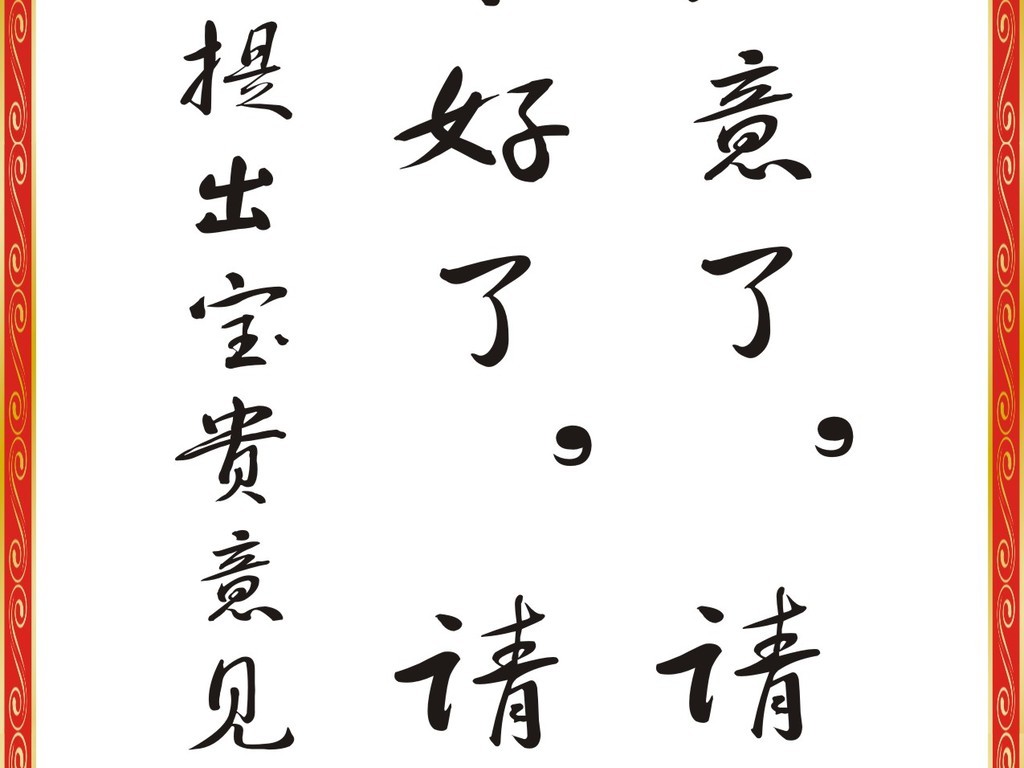 意了，请
好了，请
提出宝贵意见